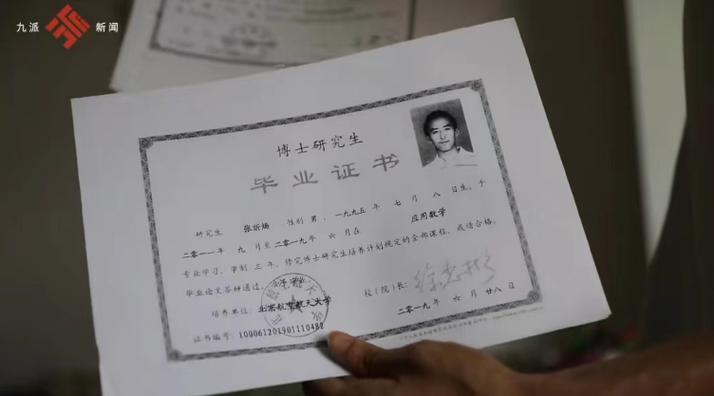 九派 新闻
博士研究生
毕业证书
研究生 张炘炀 性别 男,一九九五 年 七 月 八 日生,于
二〇一一年 九 月至二〇一九年 六 月在 应用数学
专业学习,学制 三 年,修完博士研究生培养计划规定的全部课程,成绩合格,
毕业论文答辩通过。
培养单位:北京航空航天大学 校(院)长:
证书编号:100061201901110482 二〇一九年 六 月 廿八 日